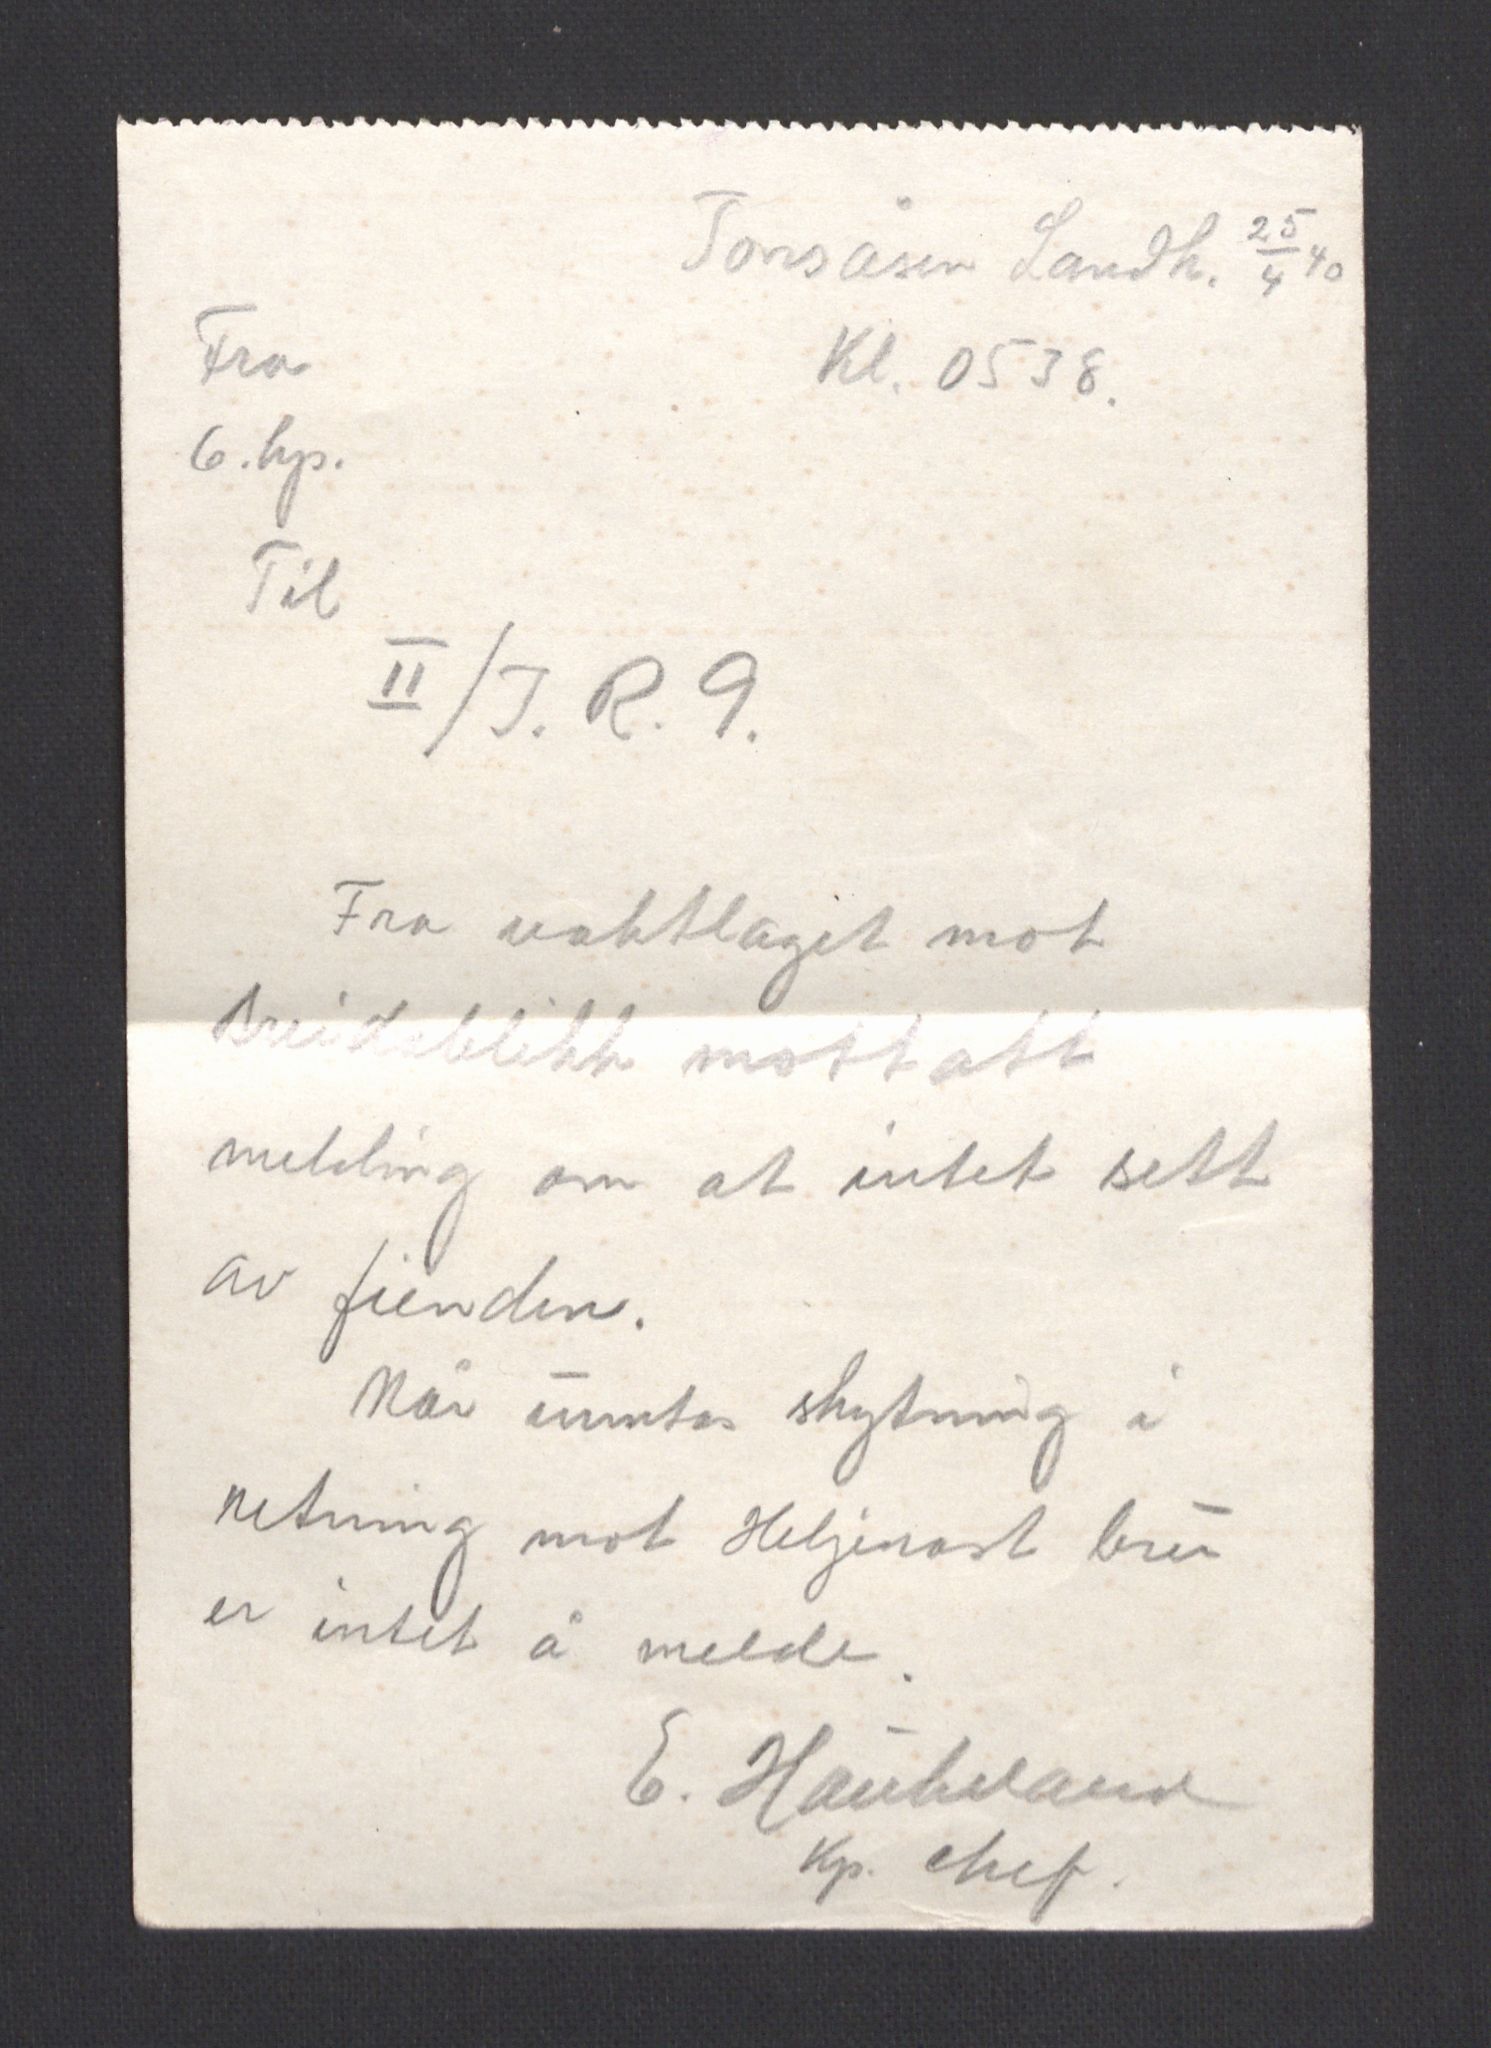 Tonsåsen Landh. 25/4 40
Fra
Kl. 0538.
6. kp.
Til
II/I. R. 9.
Fra vaktlaget mot
Breidablikk mottatt
melding om at intet sett
av fienden.
Når unntas skytning i
retning mot Heljerast bru
er intet å melde.
E. Haukeland
Kp. chef.